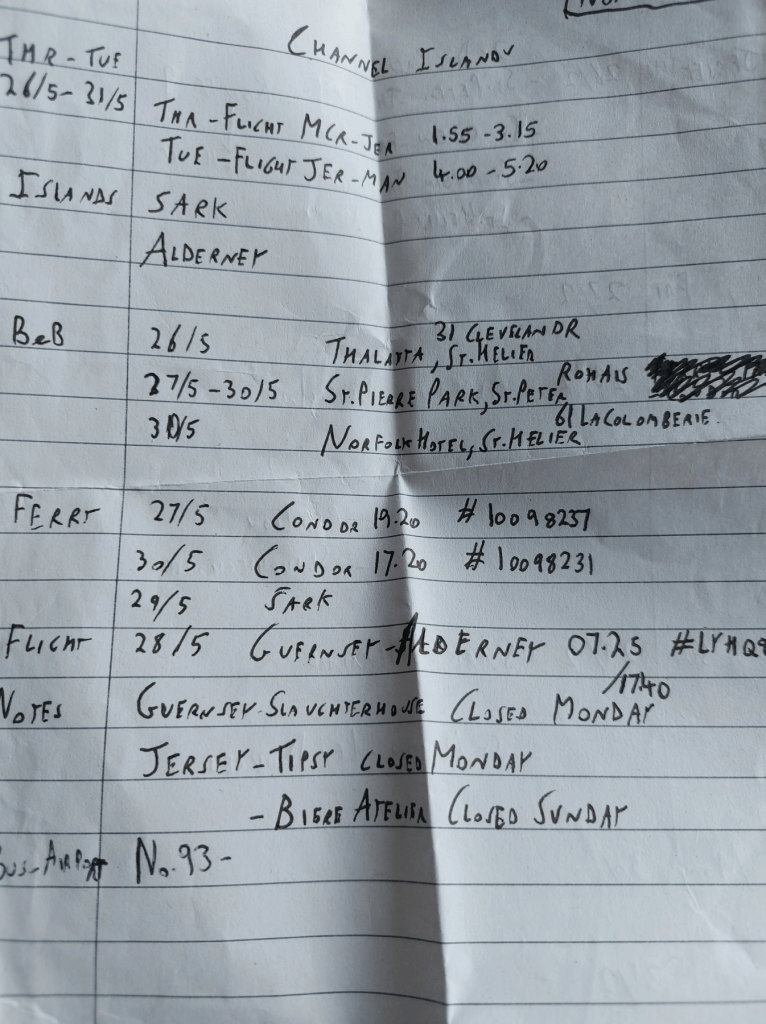 CHANNEL ISLANDS
THR - TUE
26/5 - 31/5
THR - FLIGHT MCR-JER 1.55 - 3.15
TUE - FLIGHT JER-MAN 4.00 - 5.20
ISLANDS SARK
ALDERNEY
31 CLEVELAND R
B&B 26/5 THALATTA, ST. HELIER
ROHAIS
27/5 - 30/5 ST. PIERRE PARK, ST. PETER
61 LA COLOMBERIE.
30/5 NORFOLK HOTEL, ST. HELIER
FERRY 27/5 CONDOR 19.20 # 10098237
30/5 CONDOR 17.20 # 10098231
29/5 SARK
FLIGHT 28/5 GUERNSEY - ALDERNEY 07.25 #LYHQ9
/17.40
NOTES GUERNSEY - SLAUGHTERHOUSE CLOSED MONDAY
JERSEY - TIPSY CLOSED MONDAY
- BIERE ATELIER CLOSED SUNDAY
BUS - AIRPORT No. 93 -